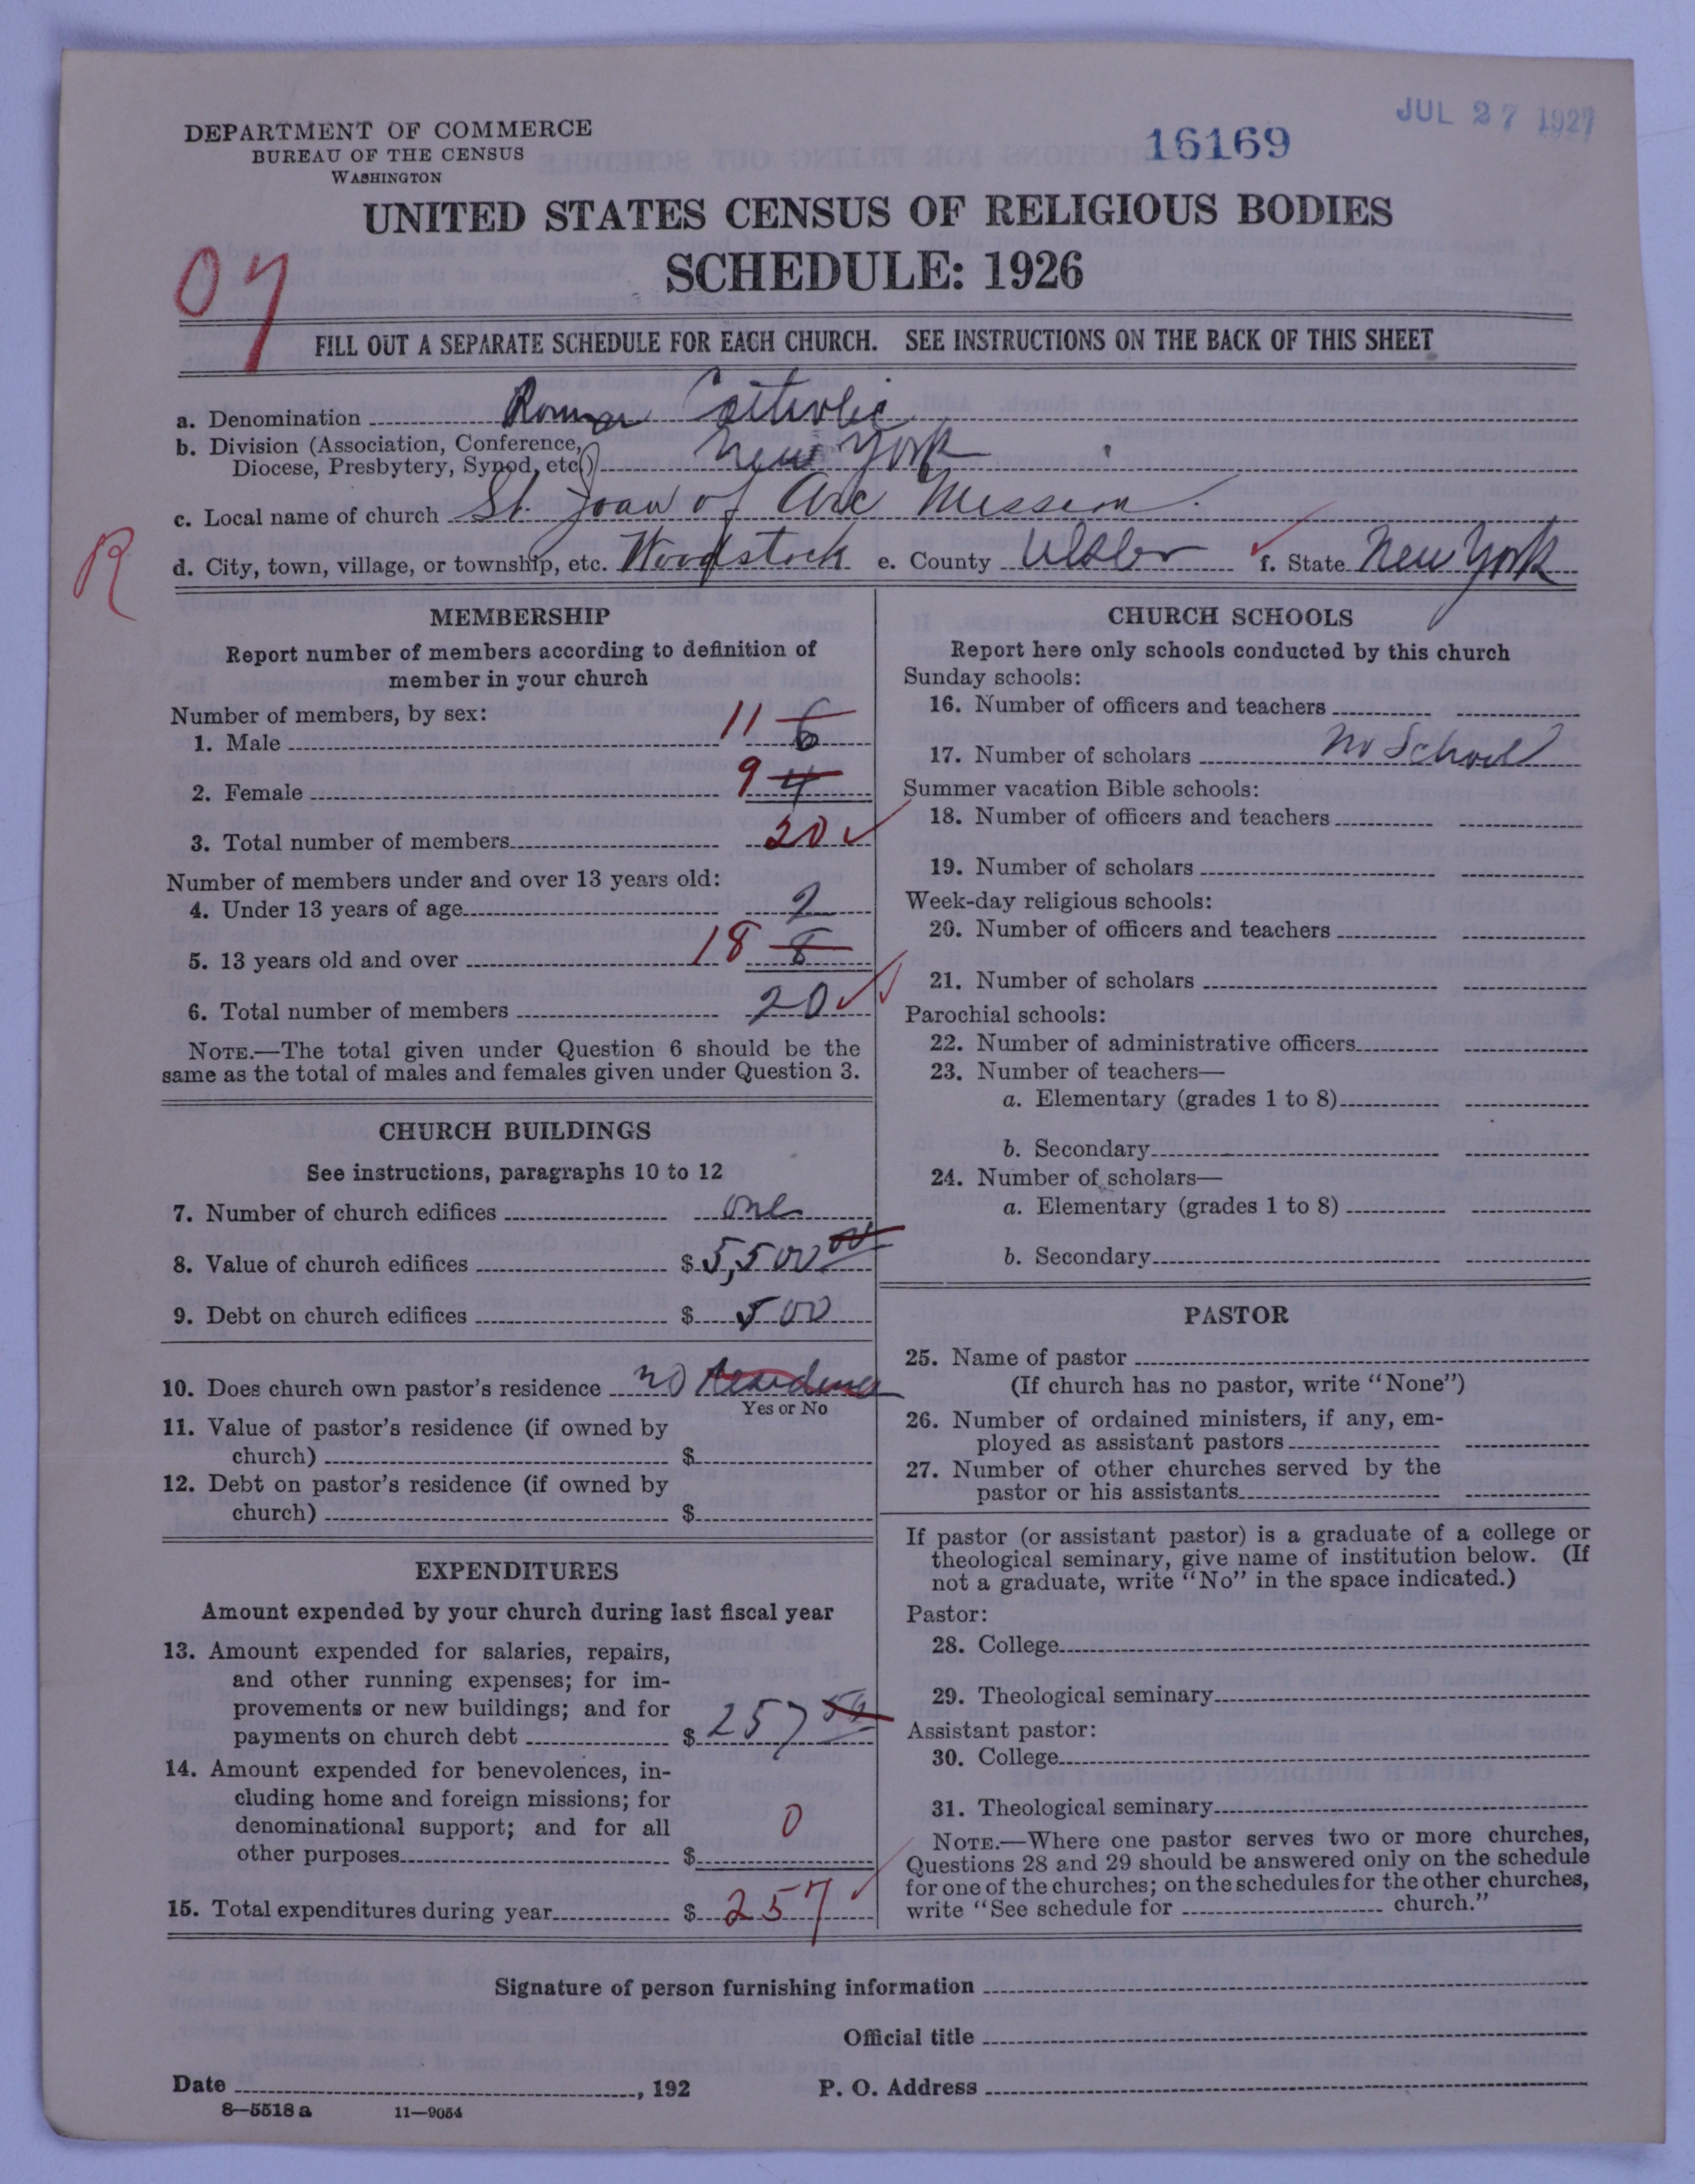 JUL 27 1927
16169
DEPARTMENT OF COMMERCE
BUREAU OF THE CENSUS
WASHINGTON
UNITED STATES CENSUS OF RELIGIOUS BODIES
SCHEDULE: 1926
07
FILL OUT A SEPARATE SCHEDULE FOR EACH CHURCH. SEE INSTRUCTIONS ON THE BACK OF THIS SHEET
a. Denomination Roman Catholic
b. Division (Association, Conference,
Diocese, Presbytery, Synod, etc.) New York
c. Local name of church St. Joan of Arc Mission
R
d. City, town, village, or township, etc. Woodstock e. County Ulster f. State New York
MEMBERSHIP
Report number of members according to definition of
member in your church
Number of members, by sex:
1. Male 11 6
2. Female 9 4
3. Total number of members 20
Number of members under and over 13 years old:
4. Under 13 years of age 2
5. 13 years old and over 18 8
6. Total number of members 20
NOTE.—The total given under Question 6 should be the
same as the total of males and females given under Question 3.
CHURCH BUILDINGS
See instructions, paragraphs 10 to 12
7. Number of church edifices one
8. Value of church edifices $ 5,500 00
9. Debt on church edifices $ 500
10. Does church own pastor's residence no residence
Yes or No
11. Value of pastor's residence (if owned by
church) $
12. Debt on pastor's residence (if owned by
church) $
EXPENDITURES
Amount expended by your church during last fiscal year
13. Amount expended for salaries, repairs,
and other running expenses; for im-
provements or new buildings; and for
payments on church debt $ 257
14. Amount expended for benevolences, in-
cluding home and foreign missions; for
denominational support; and for all
other purposes $ 0
15. Total expenditures during year $ 257
CHURCH SCHOOLS
Report here only schools conducted by this church
Sunday schools:
16. Number of officers and teachers
17. Number of scholars no School
Summer vacation Bible schools:
18. Number of officers and teachers
19. Number of scholars
Week-day religious schools:
20. Number of officers and teachers
21. Number of scholars
Parochial schools:
22. Number of administrative officers
23. Number of teachers—
a. Elementary (grades 1 to 8)
b. Secondary
24. Number of scholars—
a. Elementary (grades 1 to 8)
b. Secondary
PASTOR
25. Name of pastor
(If church has no pastor, write "None")
26. Number of ordained ministers, if any, em-
ployed as assistant pastors
27. Number of other churches served by the
pastor or his assistants
If pastor (or assistant pastor) is a graduate of a college or
theological seminary, give name of institution below. (If
not a graduate, write "No" in the space indicated.)
Pastor:
28. College
29. Theological seminary
Assistant pastor:
30. College
31. Theological seminary
NOTE.—Where one pastor serves two or more churches,
Questions 28 and 29 should be answered only on the schedule
for one of the churches; on the schedules for the other churches,
write "See schedule for church."
Signature of person furnishing information
Official title
Date , 192 P. O. Address
8—5518 a 11—9054